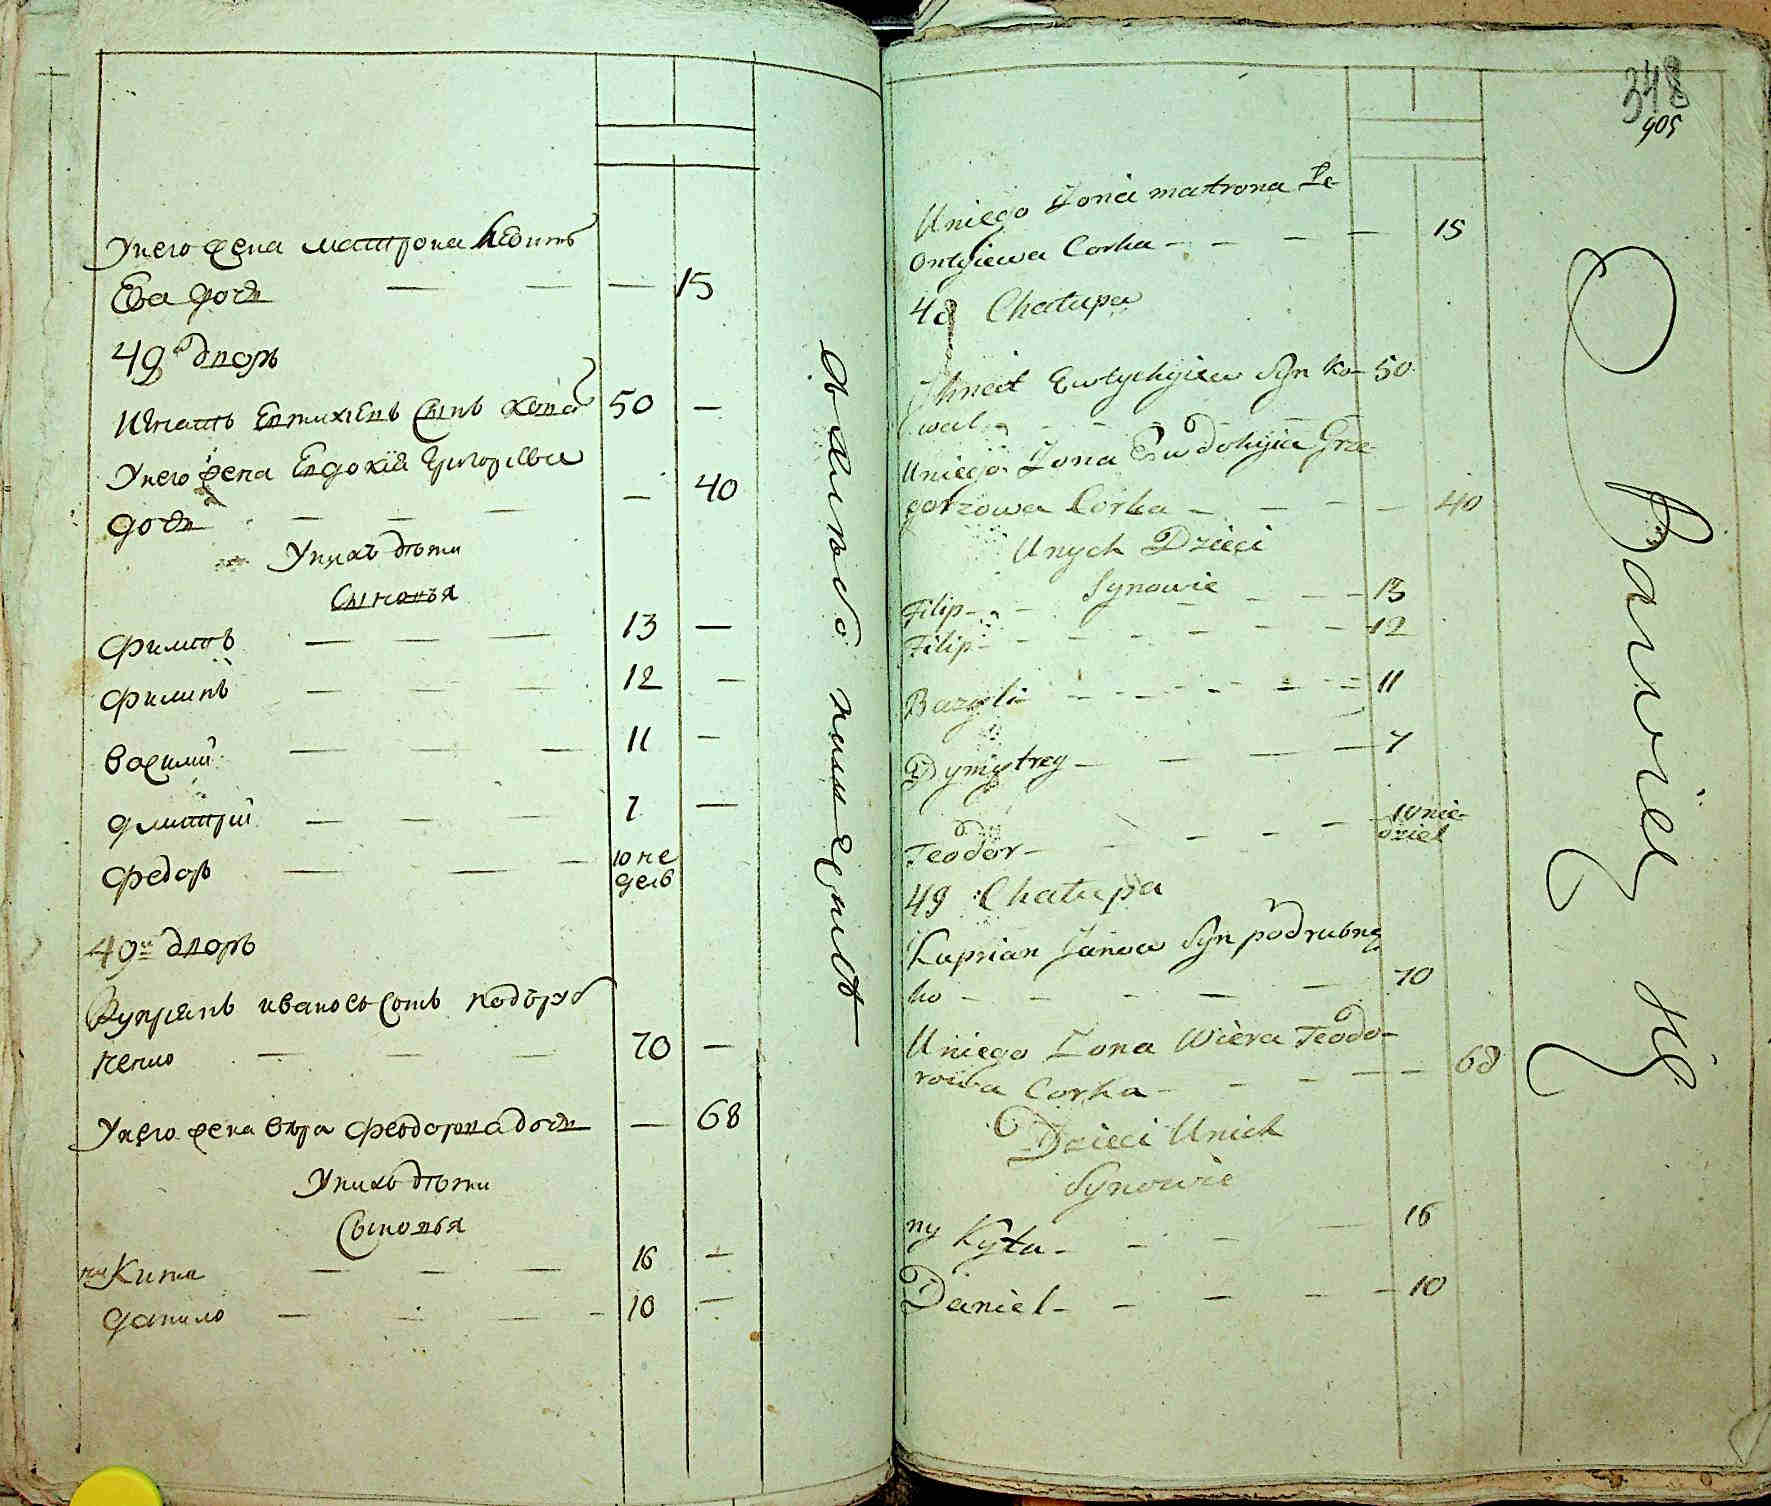 Унего жена матрона Леонть
Ева дочь — — — 15
49й дворъ
Игнатъ Евтихіевъ сынъ ковал 50 —
Унего жена Евдокія Григорьева
дочь — — — — 40
Унихъ дѣти
Сыновья
Филипъ — — — 13 —
Филипъ — — — 12 —
василий — — — 11 —
дмитрій — — — 7 —
Федоръ — — — 10 не
дель
49й дворъ
Куприянъ ивановъ сынъ подъруб
ненко — — — 70 —
Унего жена вѣра Феодорова дочь — 68
Унихъ дѣти
Сыновья
никита — — — 16 —
данило — — — — 10 —
348
405
Uniego Zona matrona Le-
ontyiewa Corka — — — — 15
48 Chatupa
Ihnat Ewtychyiew Syn Ko- 50
wal
Uniego Zona Ewdokyia Grze-
gorzowa Corka — — — — 40
Unych Dzieci
Synowie
Filip — — — — 13
Filip — — — — — — 12
Bazyli — — — — — — 11
Dymytrey — — — — 7
Teodor — — — — 10 nie-
dziel
49 Chatupa
Kuprian Janow Syn podrubnę
ko — — — — — 70
Uniego Zona Wiera Teodo-
rowa Corka — — — — — 68
Dzieci Unich
Synowie
ny Kyta — — — — 16
Daniel — — — — — 10